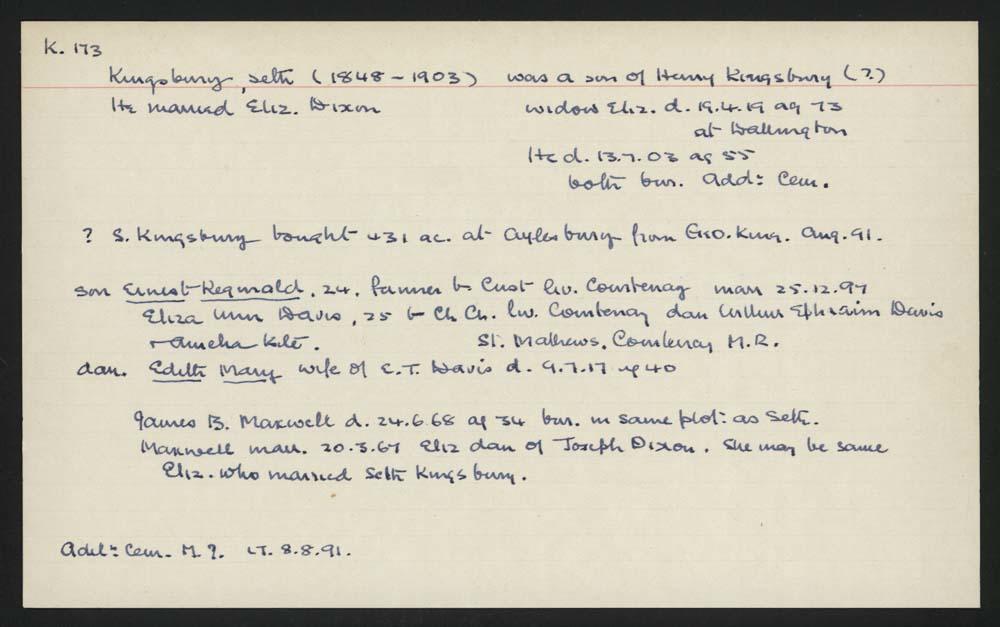 K. 173
Kingsbury, Seth (1848 - 1903) was a son of Henry Kingsbury (?)
He married Eliz. Dixon widow Eliz. d. 19.4.19 ag 73
at Wallington
He d. 13.7.03 ag 55
both bur. Add: Cem.
? S. Kingsbury bought 431 ac. at Aylesbury from Geo. King. Aug. 91.
son Ernest Reginald, 24, farmer b Cust liv. Courtenay marr 25.12.97
Eliza Ann Davis, 25 b Ch Ch. liv. Courtenay dau Arthur Ephraim Davis
+ Amelia Kite. St. Mathews, Courtenay M.R.
dau. Edith Mary wife of E.T. Davis d. 9.7.17 ag 40
James B. Maxwell d. 24.6.68 ag 34 bur. in same plot: as Seth.
Maxwell marr. 20.3.67 Eliz dau of Joseph Dixon. She may be same
Eliz. who married Seth Kingsbury.
Add: Cem. M.I. LT. 8.8.91.